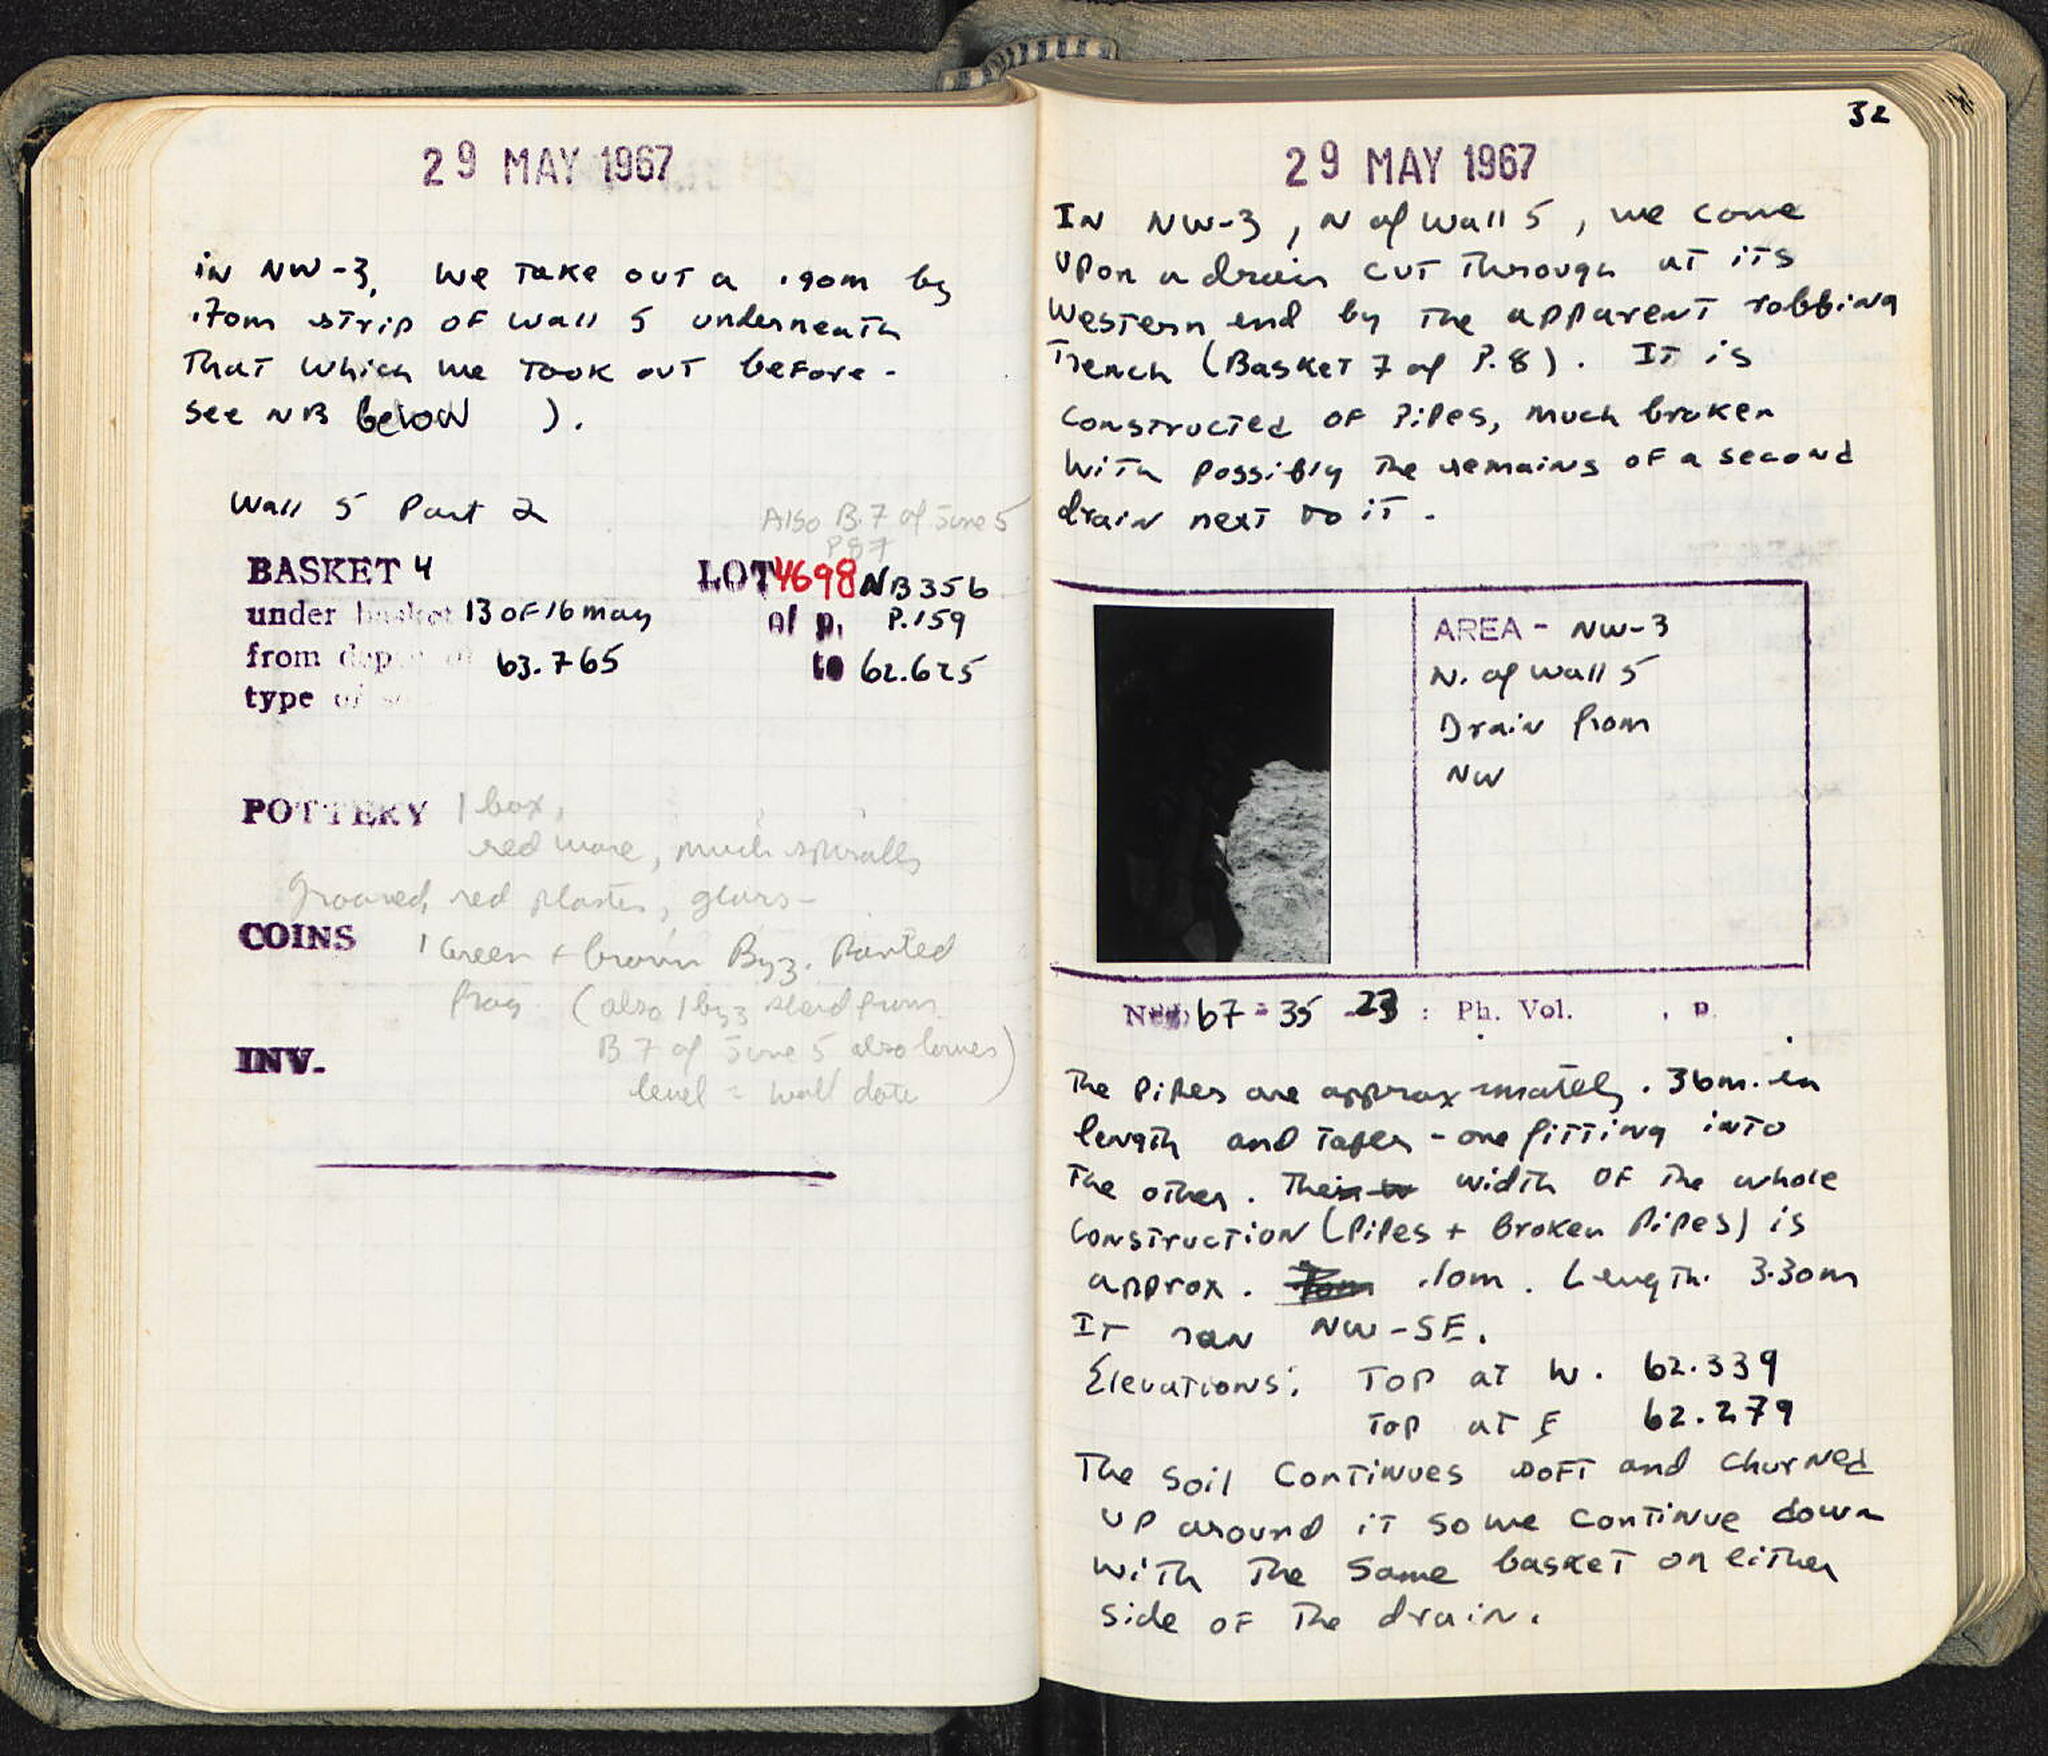 29 MAY 1967
in NW-3, we take out a .90m by
.70m strip of wall 5 underneath
that which we took out before -
see NB below ).
Wall 5 Part 2
Also B.7 of June 5
P 87
BASKET 4 LOT 4698 NB 356
under basket 13 of 16 may of p. P.159
from depth of 63.765 to 62.625
type of so
POTTERY 1 box,
red ware, much spirally
grooved, red plaster, glass -
COINS 1 Green + brown Byz. Painted
frag. (also 1 byz sherd from
INV. B 7 of June 5 also lower
level = wall date )
32
29 MAY 1967
In NW-3, N of wall 5, we come
upon a drain cut through at its
western end by the apparent robbing
trench (Basket 7 of P.8). It is
constructed of pipes, much broken
with possibly the remains of a second
drain next to it.
AREA - NW-3
N. of wall 5
Drain from
NW
Neg. 67 - 35 - 23 : Ph. Vol. , p.
The pipes are approximately .36m. in
length and taper - one fitting into
the other. Their w width of the whole
construction (pipes + broken pipes) is
approx. .10m. Length. 3.30m
It ran NW-SE.
Elevations: Top at W. 62.339
Top at E 62.279
The soil continues soft and churned
up around it so we continue down
with the same basket on either
side of the drain.